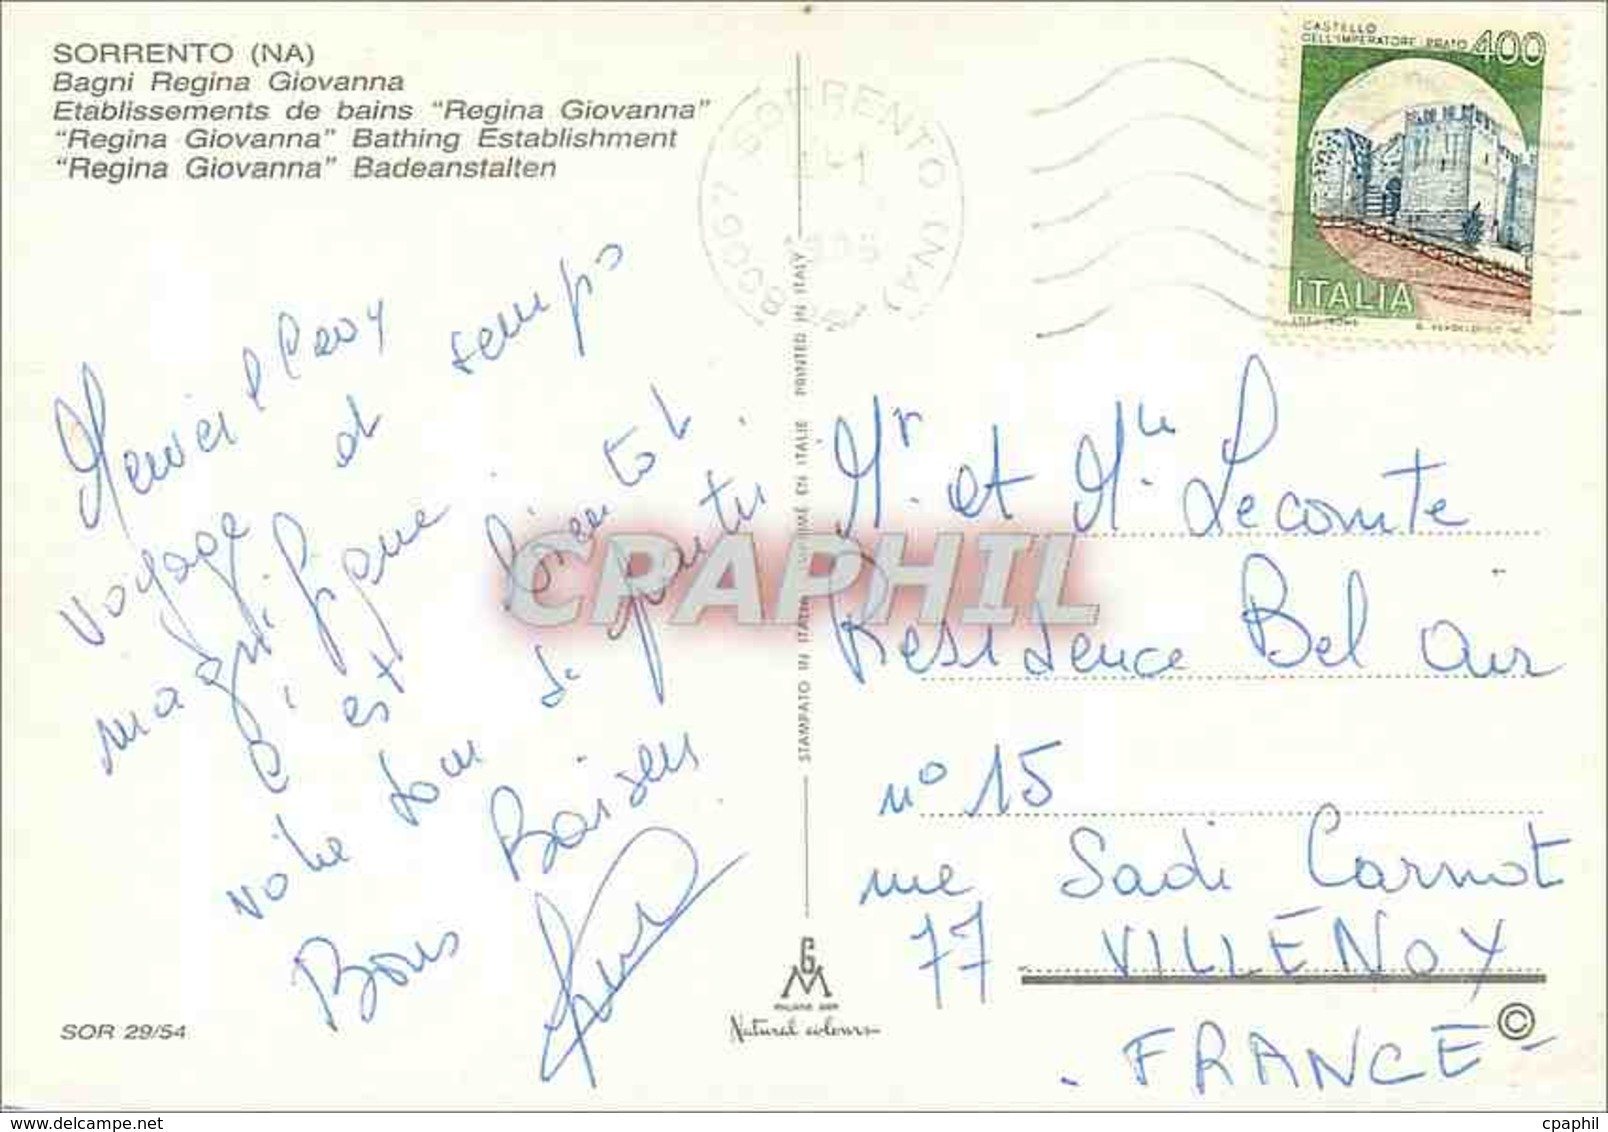 SORRENTO (NA)
Bagni Regina Giovanna
Etablissements de bains "Regina Giovanna"
"Regina Giovanna" Bathing Establishment
"Regina Giovanna" Badeanstalten
80067 SORRENTO (NA)
CASTELLO
DELL'IMPERATORE · PRATO 400
ITALIA
Merveilleux
voyage et temps
magnifique.
c'est bientôt
notre tour de partir.
Bons Baisers
STAMPATO IN ITALIA IMPRIMÉ EN ITALIE PRINTED IN ITALY
CPAPHIL
Mr. et Mlle. Lecomte
Residence Bel Air
n° 15
rue Sadi Carnot
77 VILLENOY
. FRANCE -
GM
Natural colours
SOR 29/54
©
www.delcampe.net
cpaphil